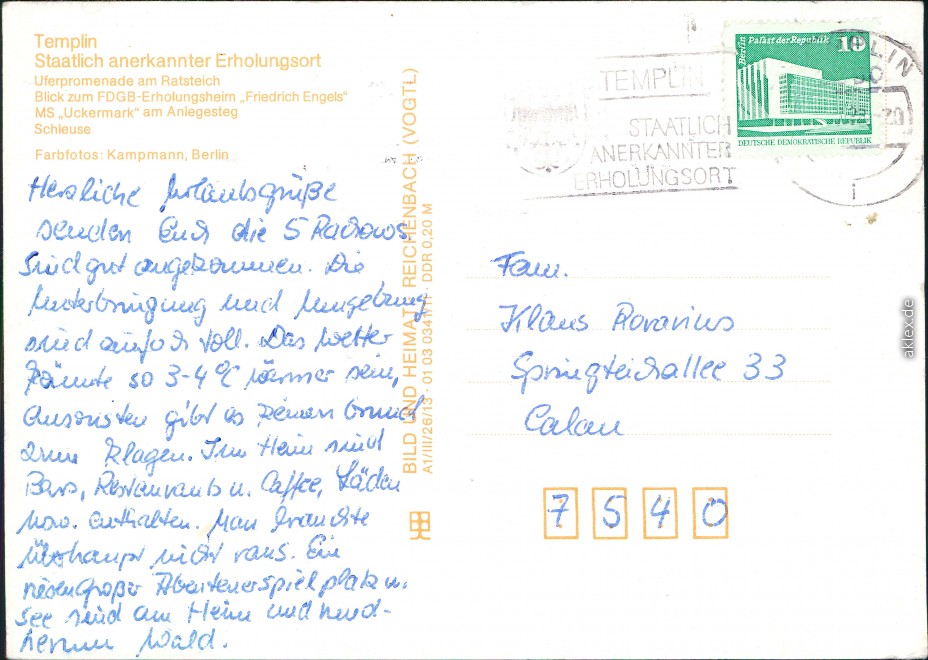 Templin
Staatlich anerkannter Erholungsort
Uferpromenade am Ratsteich
Blick zum FDGB-Erholungsheim „Friedrich Engels"
MS „Uckermark" am Anlegesteg
Schleuse
Farbfotos: Kampmann, Berlin
Herzliche Urlaubsgrüße
senden Euch die 5 Radrows.
Sind gut angekommen. Die
Unterbringung und Umgebung
sind einfach toll. Das Wetter
könnte so 3-4 °C wärmer sein,
ansonsten gibt es keinen Grund
zum klagen. Im Heim sind
Bars, Restaurants u. Caffee, Läden
usw. enthalten. Man brauchte
überhaupt nicht raus. Ein
riesengroßer Abenteuerspielplatz u.
See sind am Heim und rund-
herum Wald.
BILD UND HEIMAT REICHENBACH (VOGTL)
A1/III/26/13 · 01 03 0341/11 · DDR 0,20 M
TEMPLIN
STAATLICH
ANERKANNTER
ERHOLUNGSORT
Berlin Palast der Republik 10
DEUTSCHE DEMOKRATISCHE REPUBLIK
Fam.
Klaus
Springteichallee 33
Calau
7 5 4 0
aklex.de